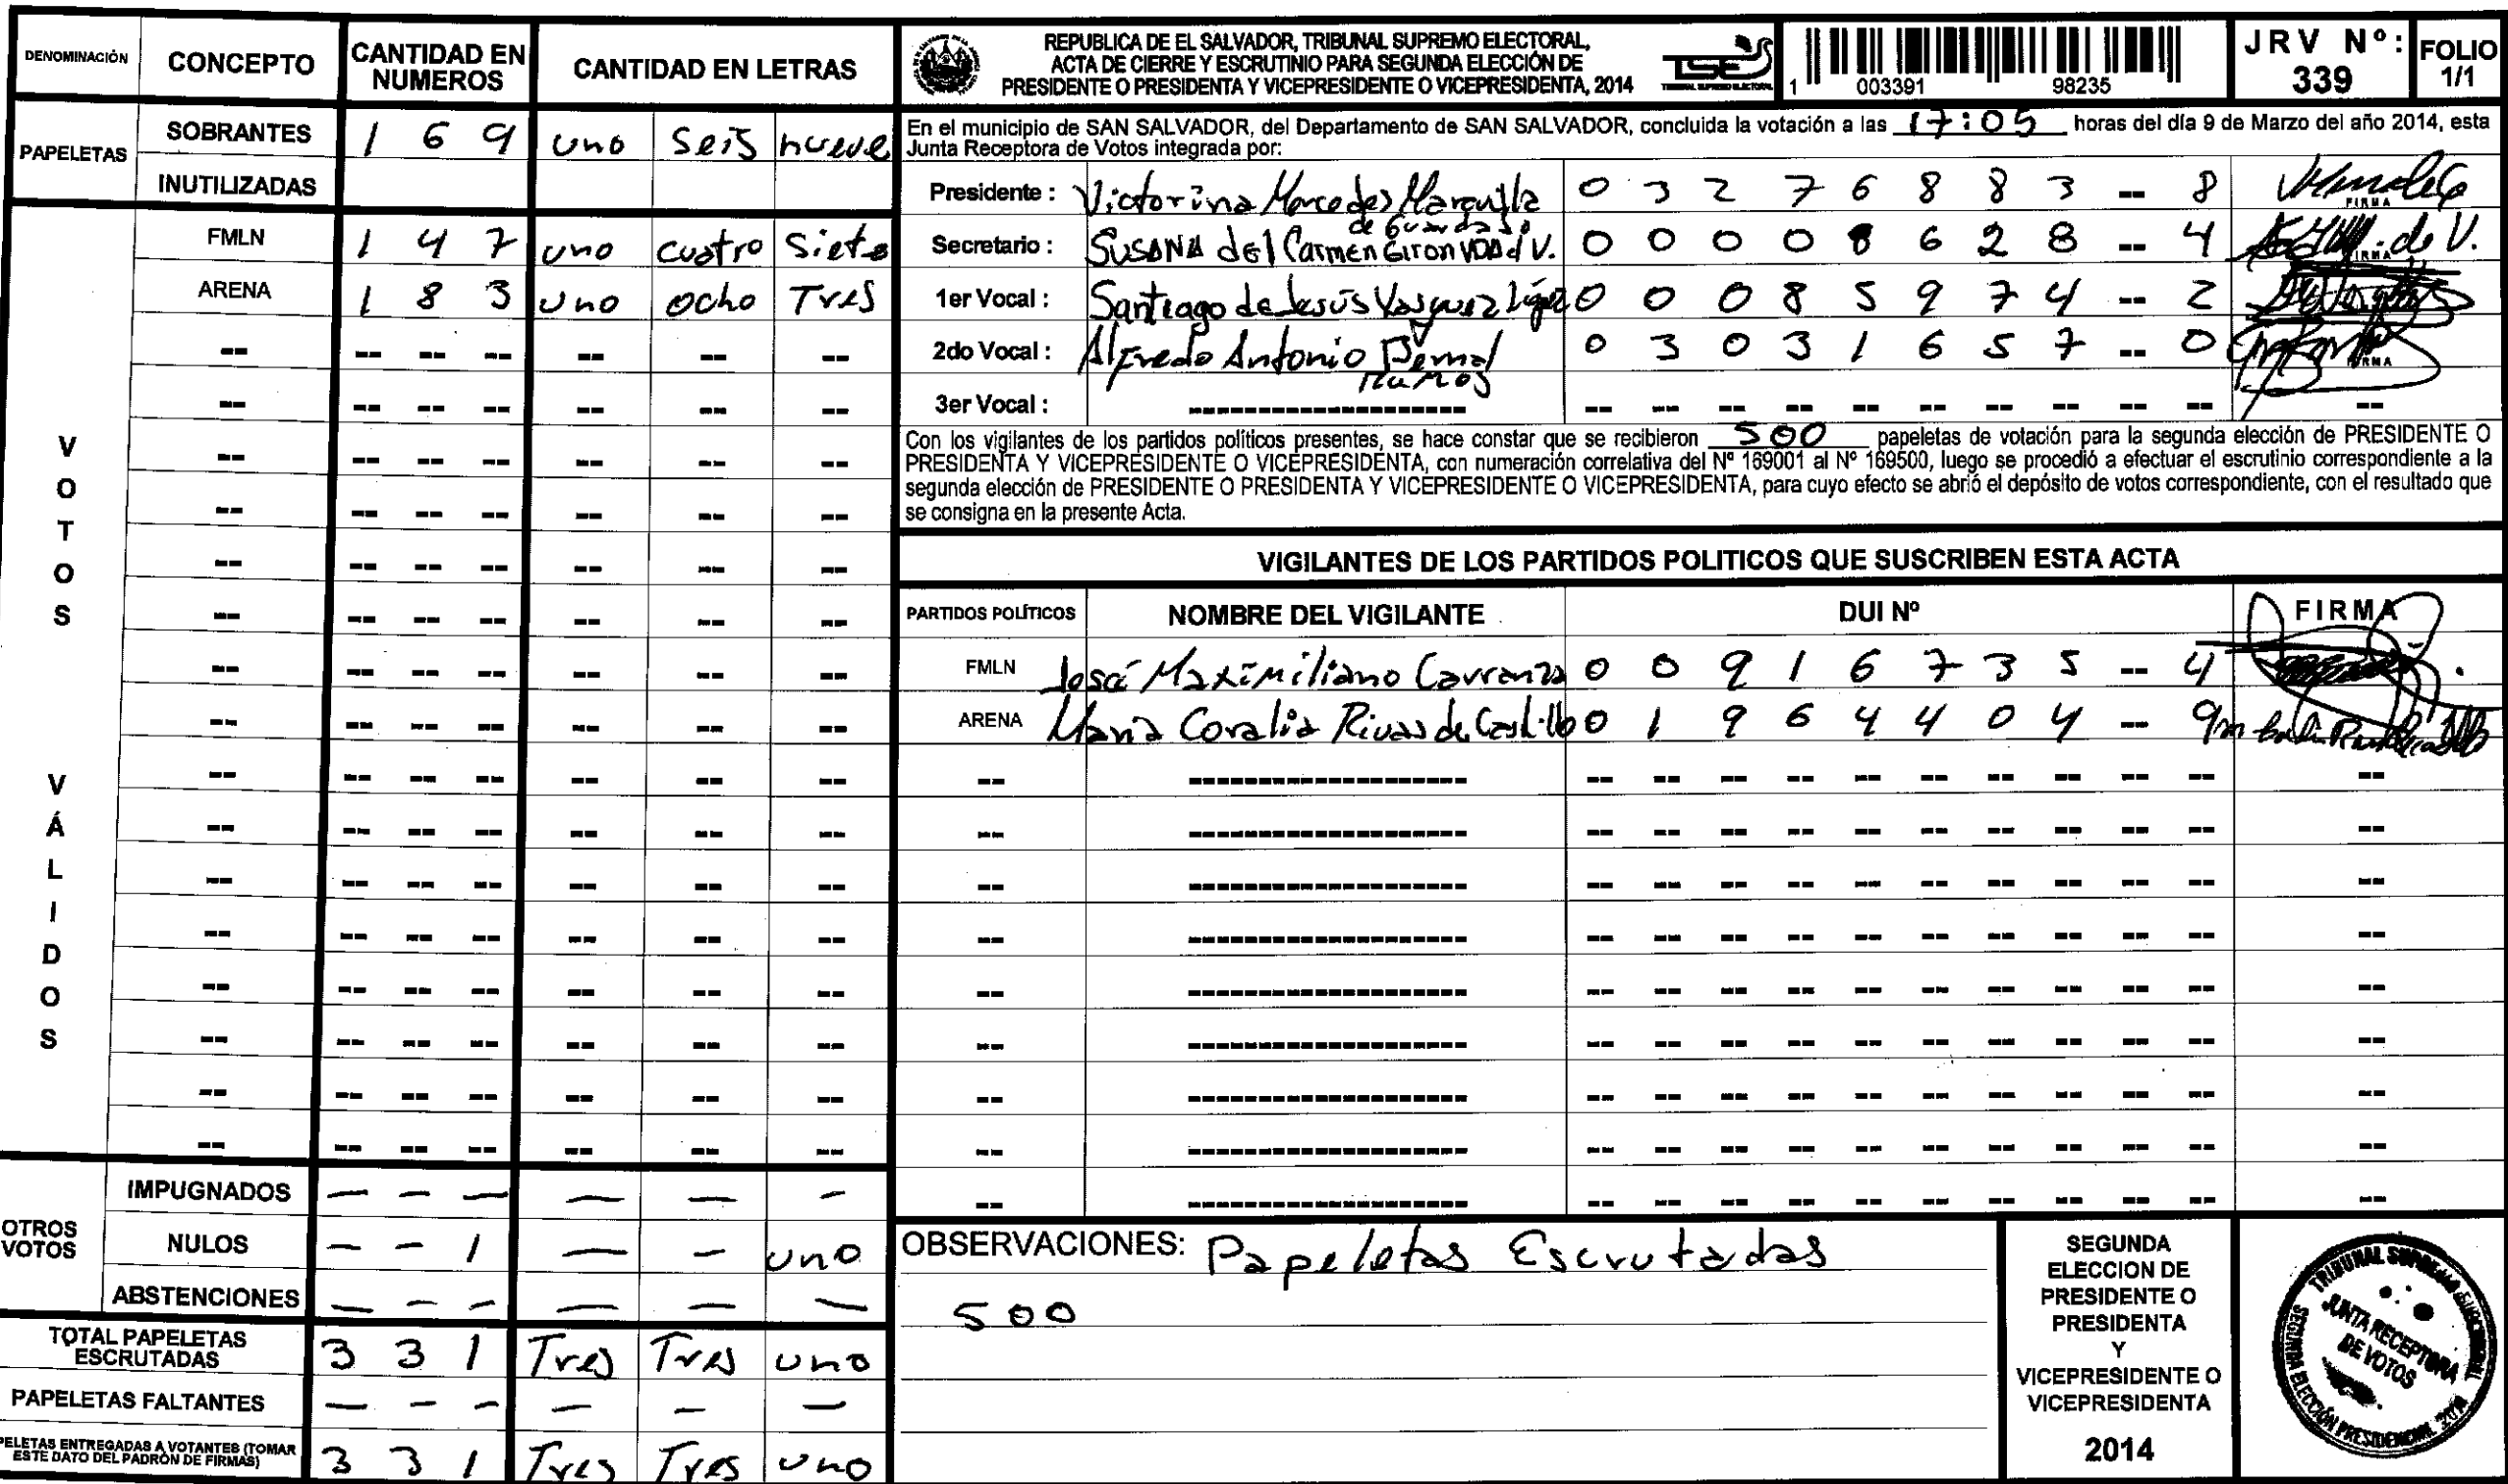 DENOMINACIÓN CONCEPTO CANTIDAD EN NUMEROS CANTIDAD EN LETRAS
PAPELETAS
SOBRANTES 1 6 9 uno seis nueve
INUTILIZADAS
VOTOS VÁLIDOS
FMLN 1 4 7 uno cuatro siete
ARENA 1 8 3 uno ocho Tres
OTROS VOTOS
IMPUGNADOS — — — — — —
NULOS — — 1 — — uno
ABSTENCIONES — — — — — —
TOTAL PAPELETAS ESCRUTADAS 3 3 1 Tres Tres uno
PAPELETAS FALTANTES — — — — — —
PELETAS ENTREGADAS A VOTANTES (TOMAR
ESTE DATO DEL PADRÓN DE FIRMAS) 3 3 1 Tres Tres uno
REPUBLICA DE EL SALVADOR, TRIBUNAL SUPREMO ELECTORAL,
ACTA DE CIERRE Y ESCRUTINIO PARA SEGUNDA ELECCIÓN DE
PRESIDENTE O PRESIDENTA Y VICEPRESIDENTE O VICEPRESIDENTA, 2014
TSE
TRIBUNAL SUPREMO ELECTORAL
1 003391 98235
JRV Nº: 339
FOLIO 1/1
En el municipio de SAN SALVADOR, del Departamento de SAN SALVADOR, concluida la votación a las 17:05 horas del día 9 de Marzo del año 2014, esta
Junta Receptora de Votos integrada por:
Presidente : Victorina Mercedes Marquilla de Guardado 0 3 2 7 6 8 8 3 -- 8 FIRMA
Secretario : SUSANA del Carmen Giron VDA d V. 0 0 0 0 8 6 2 8 -- 4 de V. FIRMA
1er Vocal : Santiago de Jesús Vasquez López 0 0 0 8 5 9 7 4 -- 2
2do Vocal : Alfredo Antonio Bernal Ramos 0 3 0 3 1 6 5 7 -- 0 FIRMA
3er Vocal : -------------------- -- -- -- -- -- -- -- -- -- -- --
Con los vigilantes de los partidos políticos presentes, se hace constar que se recibieron 500 papeletas de votación para la segunda elección de PRESIDENTE O
PRESIDENTA Y VICEPRESIDENTE O VICEPRESIDENTA, con numeración correlativa del Nº 169001 al Nº 169500, luego se procedió a efectuar el escrutinio correspondiente a la
segunda elección de PRESIDENTE O PRESIDENTA Y VICEPRESIDENTE O VICEPRESIDENTA, para cuyo efecto se abrió el depósito de votos correspondiente, con el resultado que
se consigna en la presente Acta.
VIGILANTES DE LOS PARTIDOS POLITICOS QUE SUSCRIBEN ESTA ACTA
PARTIDOS POLÍTICOS NOMBRE DEL VIGILANTE DUI Nº FIRMA
FMLN José Maximiliano Carranza 0 0 9 1 6 7 3 5 -- 4
ARENA Maria Coralia Rivas de Castillo 0 1 9 6 4 4 0 4 -- 9
OBSERVACIONES: Papeletas Escrutadas
500
SEGUNDA
ELECCION DE
PRESIDENTE O
PRESIDENTA
Y
VICEPRESIDENTE O
VICEPRESIDENTA
2014
TRIBUNAL SUPREMO ELECTORAL
JUNTA RECEPTORA
DE VOTOS
SEGUNDA ELECCIÓN PRESIDENCIAL 2014